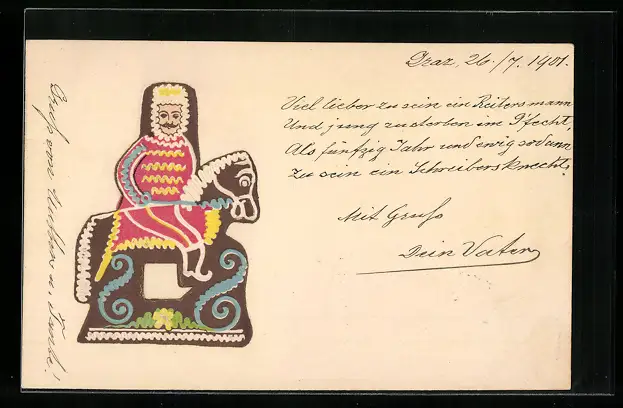 Graz, 26./7. 1901.
Viel lieber zu sein ein Reitersmann
Und jung zu sterben im G'fecht,
Als fünfzig Jahr und ewig sodann
Zu sein ein Schreibersknecht.
Mit Gruß
Dein Vater
Gruß von u.